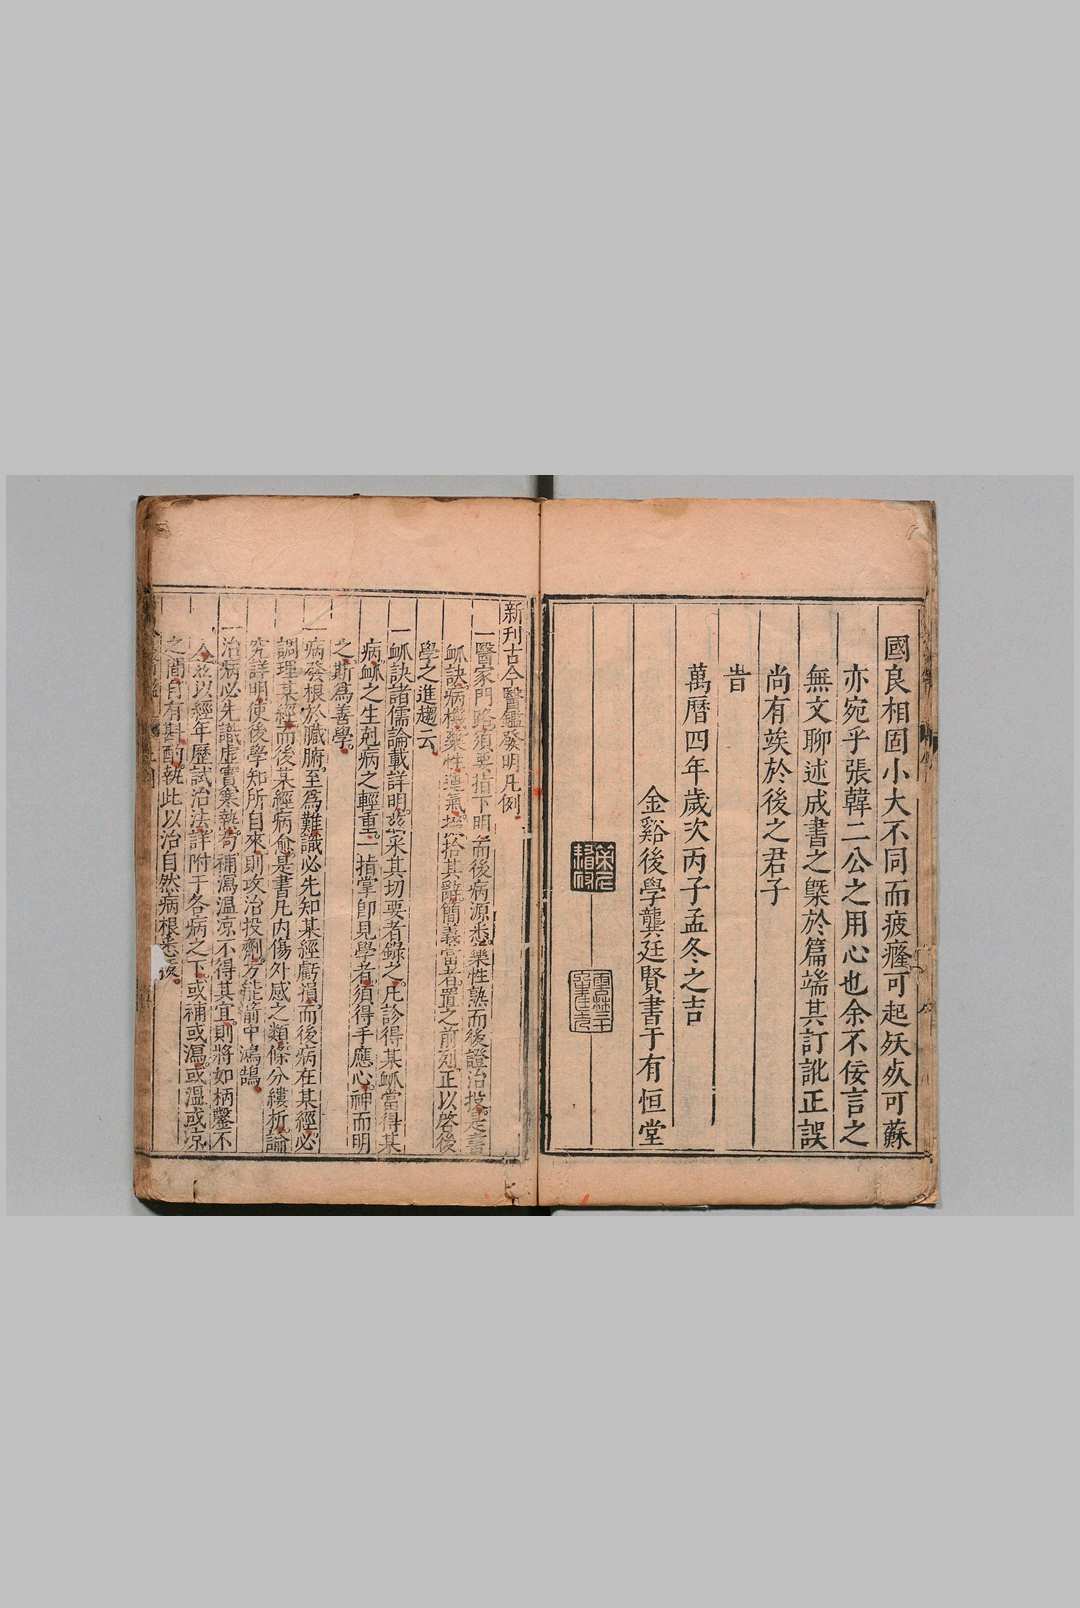 國良相固小大不同而疲癃可起妖夭可蘇
亦宛乎張韓二公之用心也余不佞言之
無文聊述成書之槩於篇端其訂訛正誤
尚有竢於後之君子
旹
萬曆四年歲次丙子孟冬之吉
金谿後學龔廷賢書于有恒堂
新刊古今醫鑑發明凡例
一醫家門路須要指下明而後病源悉藥性熟而後證治投是書
脈訣病機藥性運氣採拾其辭簡義當者置之前列正以啓後
學之進趨云
一脈訣諸儒論載詳明玆采其切要者錄之凡診得某脈當得某
病脈之生剋病之輕重一指掌卽見學者須得手應心神而明
之斯爲善學
一病發根於臟腑至爲難識必先知某經虧損而後病在某經必
調理某經而後某經病愈是書凡内傷外感之類條分縷析論
究詳明使後學知所自來則攻治投劑方能箭中鴻鵠
一治病必先識虛實寒熱苟補瀉溫凉不得其宜則將如柄鑿不
入玆以經年歷試治法詳附于各病之下或補或瀉或溫或凉
之間自有斟酌執此以治自然病根悉